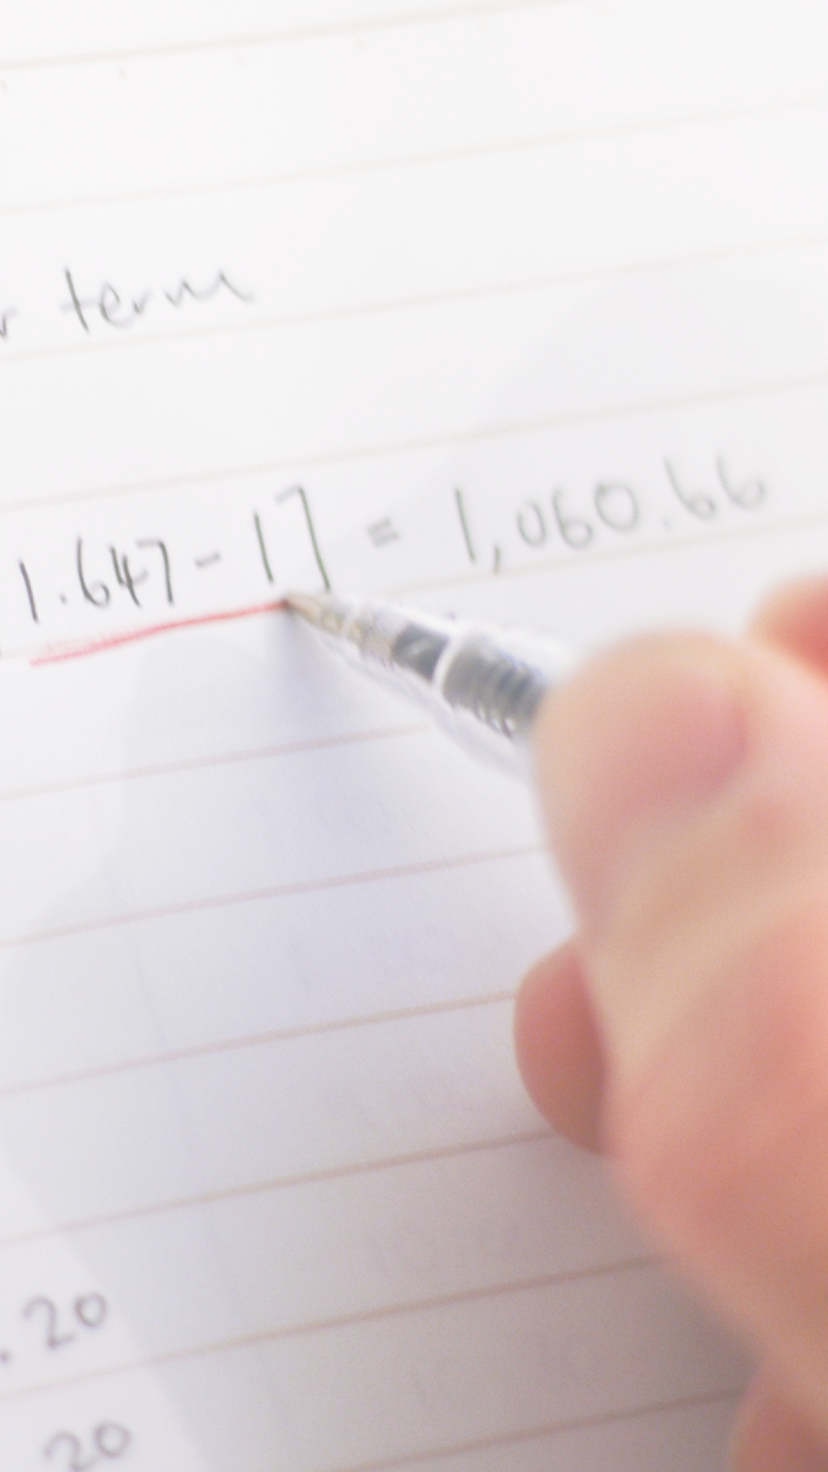 r term
1.647-1] = 1,060.66
.20
20